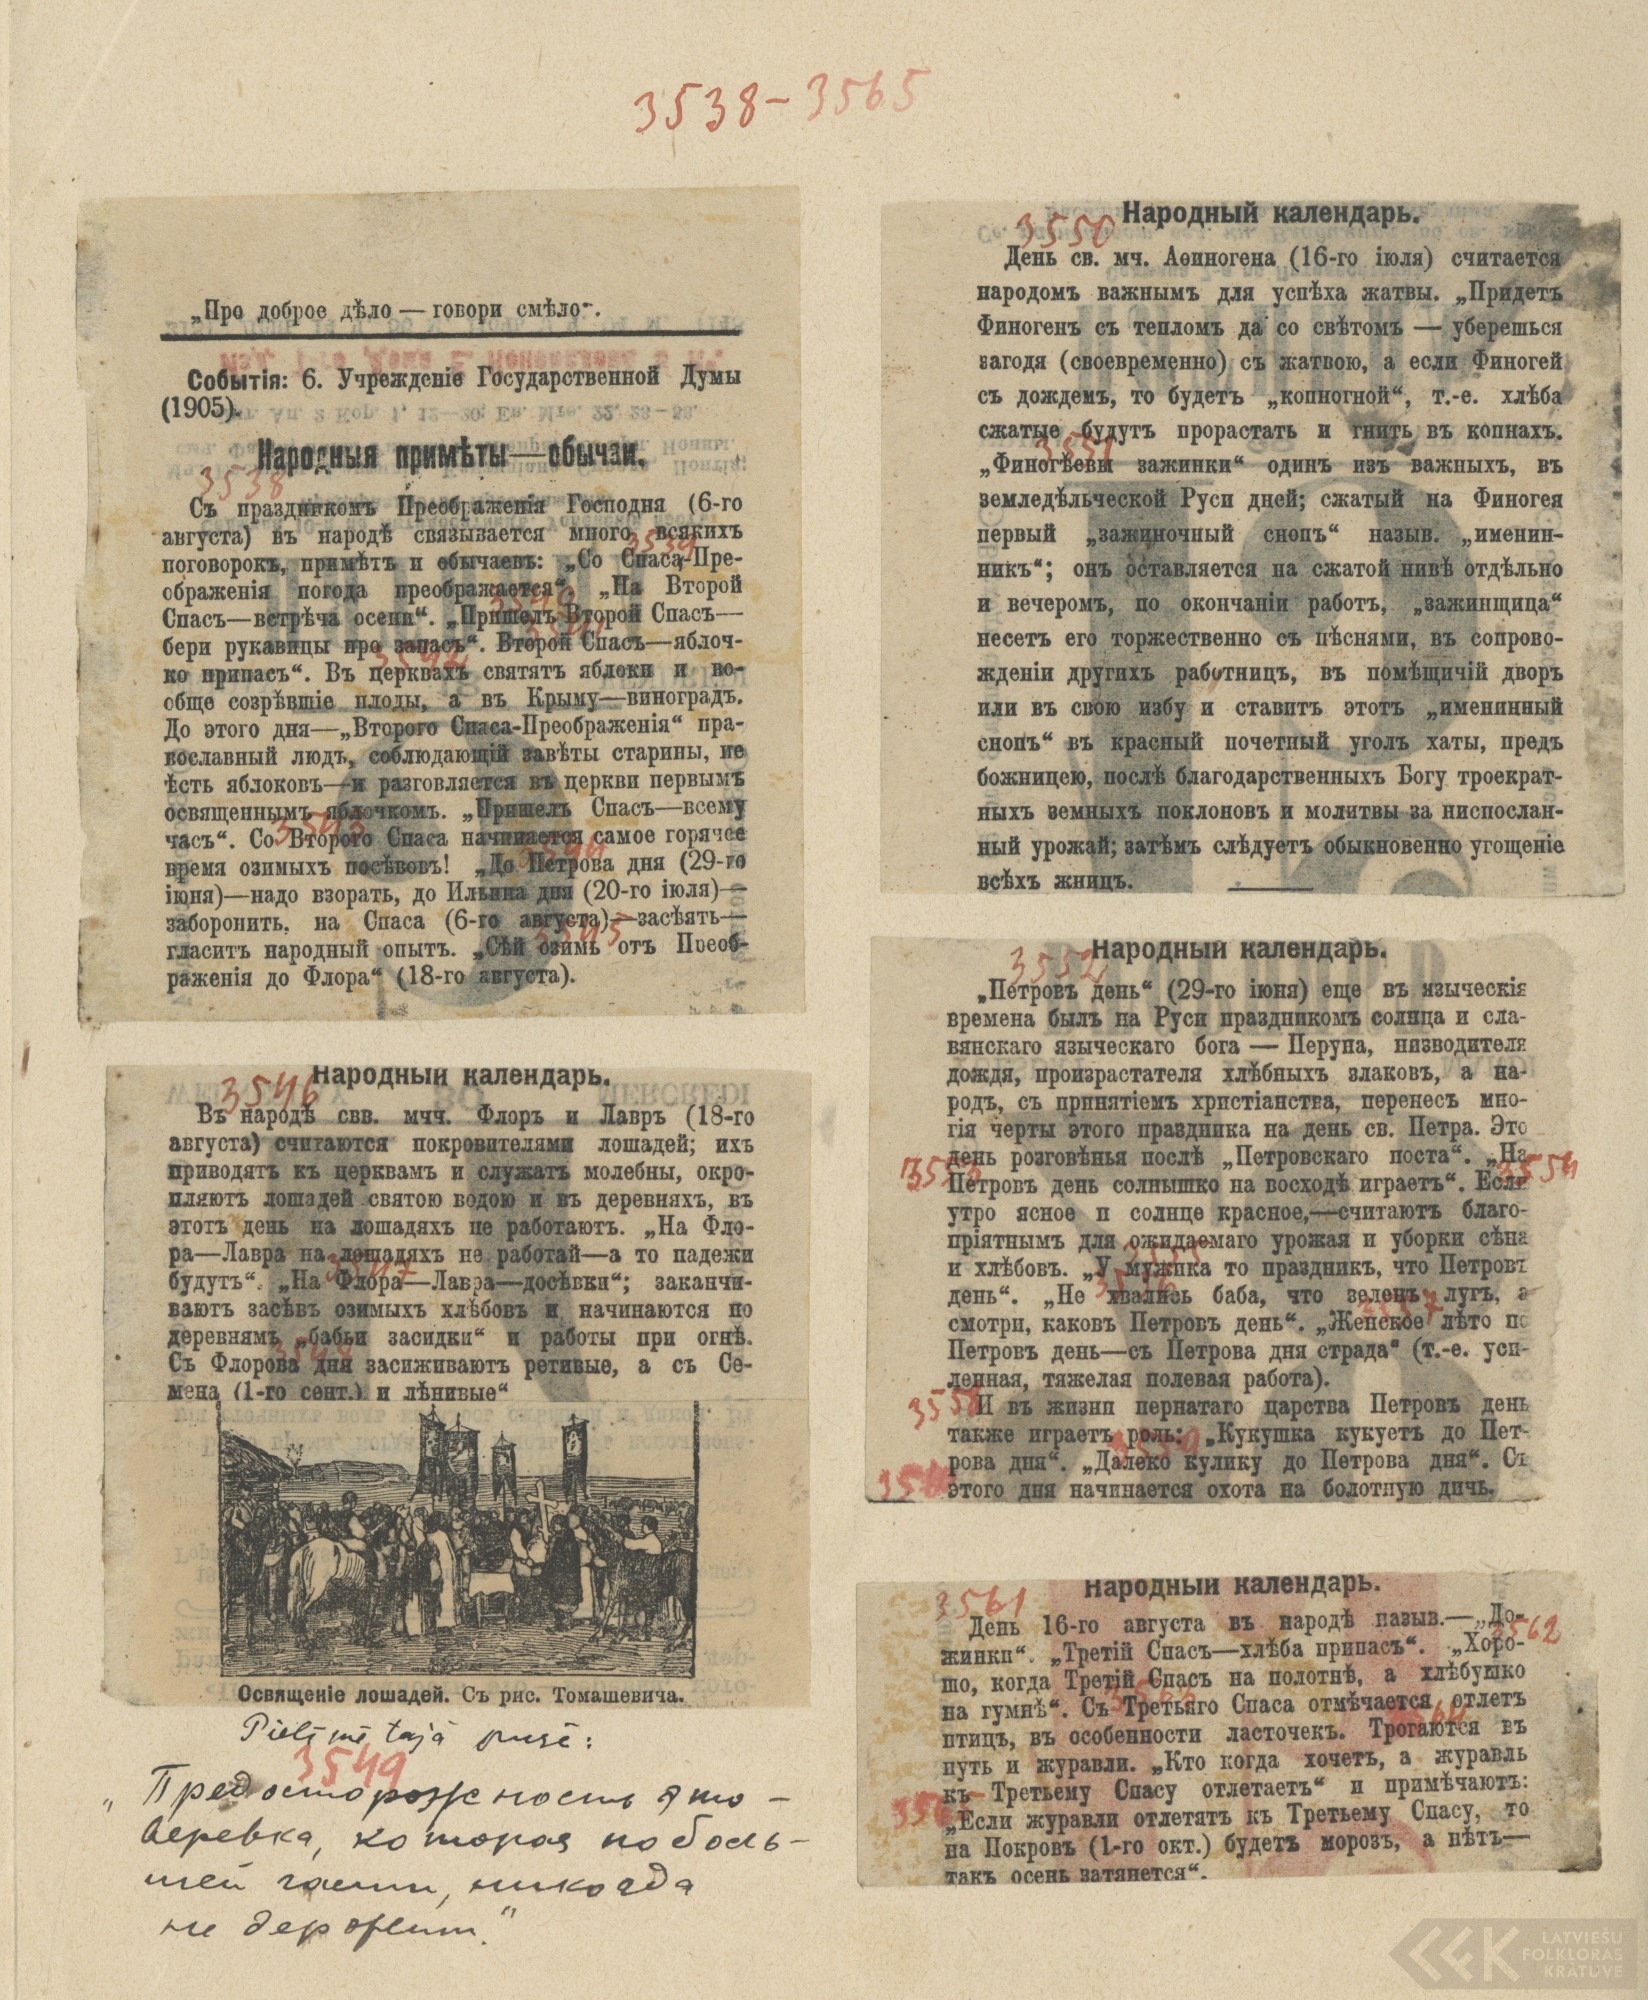 3538-3565
„Про доброе дѣло — говори смѣло“.
Событія: 6. Учрежденіе Государственной Думы
(1905).
Народныя примѣты—обычаи.
3538
Съ праздникомъ Преображенія Господня (6-го
августа) въ народѣ связывается много всякихъ
3539
поговорокъ, примѣтъ и обычаевъ: „Со Спаса-Пре-
ображенія погода преображается“. „На Второй
3540
Спасъ—встрѣча осени“. „Пришелъ Второй Спасъ—
3541
бери рукавицы про запасъ“. Второй Спасъ—яблоч-
3542
ко припасъ“. Въ церквахъ святятъ яблоки и во-
обще созрѣвшіе плоды, а въ Крыму—виноградъ.
До этого дня—„Второго Спаса-Преображенія“ пра-
вославный людъ, соблюдающій завѣты старины, не
ѣсть яблоковъ—и разговляется въ церкви первымъ
освященнымъ яблочкомъ. „Пришелъ Спасъ—всему
3543
часъ“. Со Второго Спаса начинается самое горячее
3544
время озимыхъ посѣвовъ! „До Петрова дня (29-го
іюня)—надо взорать, до Ильина дня (20-го іюля)—
заборонить, на Спаса (6-го августа)—засѣять—
3545
гласитъ народный опытъ. „Сѣй озимь отъ Преоб-
раженія до Флора“ (18-го августа).
Народный календарь.
3546
Въ народѣ свв. мчч. Флоръ и Лавръ (18-го
августа) считаются покровителями лошадей; ихъ
приводятъ къ церквамъ и служатъ молебны, окро-
пляютъ лошадей святою водою и въ деревняхъ, въ
этотъ день на лошадяхъ не работаютъ. „На Фло-
ра—Лавра на лошадяхъ не работай—а то падежи
3547
будутъ“. „На Флора—Лавра—досѣвки“; заканчи-
ваютъ засѣвъ озимыхъ хлѣбовъ и начинаются по
деревнямъ „бабьи засидки“ и работы при огнѣ.
3548
Съ Флорова дня засиживаютъ ретивые, а съ Се-
мена (1-го сент.) и лѣнивые“
Освященіе лошадей. Съ рис. Томашевича.
Pielīmētajā pusē:
3549
„Предосторожность это —
веревка, которая по боль-
шей части, никогда
не держит.“
Народный календарь.
3550
День св. мч. Аѳиногена (16-го іюля) считается
народомъ важнымъ для успѣха жатвы. „Придетъ
Финогенъ съ тепломъ да со свѣтомъ — уберешься
загодя (своевременно) съ жатвою, а если Финогей
съ дождемъ, то будетъ „копногной“, т.-е. хлѣба
сжатые будутъ прорастать и гнить въ копнахъ.
3551
„Финогѣевы зажинки“ одинъ изъ важныхъ, въ
земледѣльческой Руси дней; сжатый на Финогея
первый „зажиночный снопъ“ назыв. „именин-
никъ“; онъ оставляется на сжатой нивѣ отдѣльно
и вечеромъ, по окончаніи работъ, „зажинщица“
несетъ его торжественно съ пѣснями, въ сопрово-
жденіи другихъ работницъ, въ помѣщичій дворъ
или въ свою избу и ставитъ этотъ „именинный
снопъ“ въ красный почетный уголъ хаты, предъ
божницею, послѣ благодарственныхъ Богу троекрат-
ныхъ земныхъ поклоновъ и молитвы за ниспослан-
ный урожай; затѣмъ слѣдуетъ обыкновенно угощеніе
всѣхъ жницъ.
Народный календарь.
3552
„Петровъ день“ (29-го іюня) еще въ языческія
времена былъ на Руси праздникомъ солнца и сла-
вянскаго языческаго бога — Перуна, низводителя
дождя, произрастателя хлѣбныхъ злаковъ, а на-
родъ, съ принятіемъ христіанства, перенесъ мно-
гія черты этого праздника на день св. Петра. Это
день розговѣнья послѣ „Петровскаго поста“. „На
3553 3554
Петровъ день солнышко на восходѣ играетъ“. Если
утро ясное и солнце красное,—считаютъ благо-
пріятнымъ для ожидаемаго урожая и уборки сѣна
3555
и хлѣбовъ. „У мужика то праздникъ, что Петровъ
3556
день“. „Не хвались баба, что зеленъ лугъ, а
3557
смотри, каковъ Петровъ день“. „Женское лѣто по
Петровъ день—съ Петрова дня страда“ (т.-е. уси-
ленная, тяжелая полевая работа).
3558
И въ жизни пернатаго царства Петровъ день
также играетъ роль: „Кукушка кукуетъ до Пет-
3559
рова дня“. „Далеко кулику до Петрова дня“. Съ
3560
этого дня начинается охота на болотную дичь.
Народный календарь.
3561
День 16-го августа въ народѣ назыв.—„До-
3562
жинки“. „Третій Спасъ—хлѣба припасъ“. „Хоро-
шо, когда Третій Спасъ на полотнѣ, а хлѣбушко
3563
на гумнѣ“. Съ Третьяго Спаса отмѣчается отлетъ
3564
птицъ, въ особенности ласточекъ. Трогаются въ
путь и журавли. „Кто когда хочетъ, а журавль
къ Третьему Спасу отлетаетъ“ и примѣчаютъ:
3565
„Если журавли отлетятъ къ Третьему Спасу, то
на Покровъ (1-го окт.) будетъ морозъ, а нѣтъ—
такъ осень затянется“.
LATVIEŠU
FOLKLORAS
KRĀTUVE